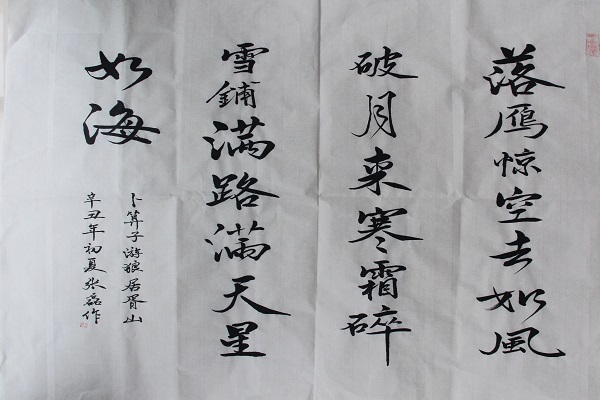 落鴈惊空去如風
破月来寒霜碎
雪鋪满路满天星
如海
卜算子游狼居胥山
辛丑年初夏张磊作